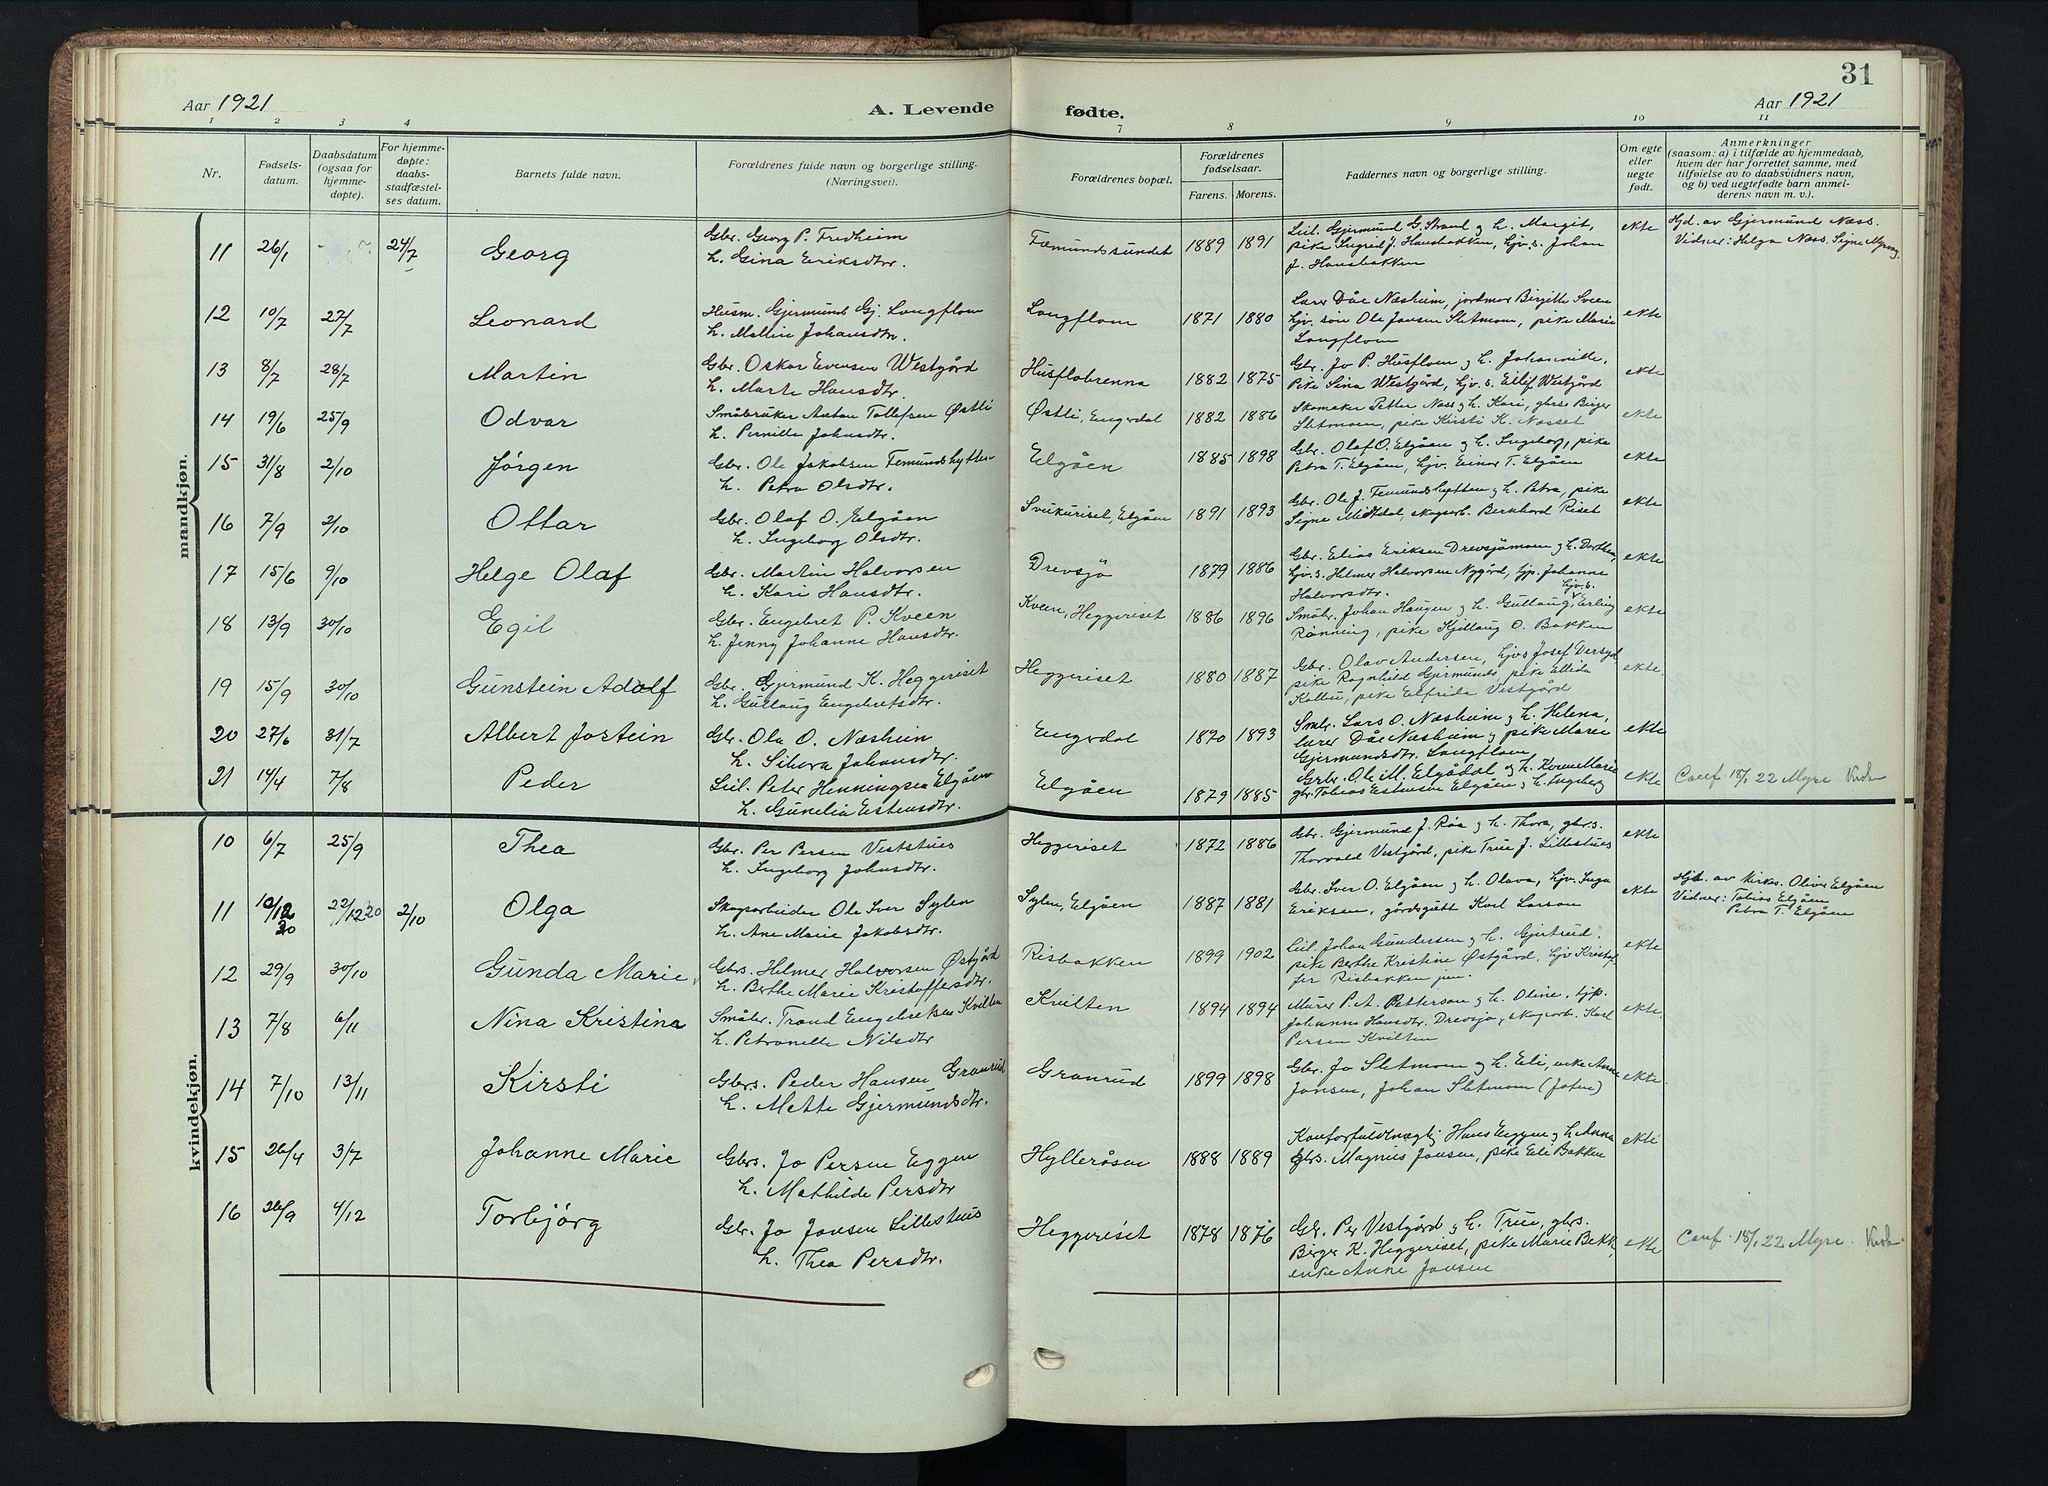 31
Aar 1921
A. Levende
fødte.
Aar 1921
1 2 3 4 7 8 9 10 11
Nr.
Fødsels-
datum.
Daabsdatum
(ogsaa for
hjemme-
døpte).
For hjemme-
døpte:
daabs-
stadfæstel-
ses datum.
Barnets fulde navn.
Forældrenes fulde navn og borgerlige stilling.
(Næringsvei).
Forældrenes bopæl.
Forældrenes
fødselsaar.
Farens. Morens.
Faddernes navn og borgerlige stilling.
Om egte
eller
uegte
født.
Anmerkninger
(saasom: a) i tilfælde av hjemmedaab,
hvem der har forrettet samme, med
tilføielse av to daabsvidners navn,
og b) ved uegtefødte barn anmel-
derens navn m. v.).
mandkjøn.
11 26/1 24/7 Georg
Gbr. Georg P. Fredheim
h. Gina Eriksdtr.
Fæmundssundet 1889 1891
Leil. Gjermund G. Strand og h. Margit,
pike Ingrid J. Hansbakken, hjv. s. Johan
J. Hansbakken
ekte
Hjd. av Gjermund Næss.
Vidner: Helga Næss. Signe Myreng.
12 10/7 27/7 Leonard
Husm. Gjermund Gj. Longflom
h. Mathie Johansdtr.
Longflom 1871 1880
Lærer Dåe Næsheim, jordmor Birgitte Sveen
hjv. søn Ole Jonsen Sletmoen, pike Marie
Longflom
ekte
13 8/7 28/7 Martin
Gbr. Oskar Evensen Westgård
h. Marte Hansdtr.
Husflobrenna 1882 1875
Gbr. Jo P. Husfloen og h. Johannitte,
Pike Sina Westgård, hjv. s. Eilif Westgård
ekte
14 19/6 25/9 Odvar
Småbruker Anton Tollefsen Østli
h. Pernille Johnsdtr.
Østli, Engerdal 1882 1886
Skomaker Petter Næss og h. Kari, gbrs Birger
Sletmoen, pike Kirsti K. Næsset
ekte
15 31/8 2/10 Jørgen
Gbr. Ole Jakobsen Femundshytten
h. Petra Olsdtr.
Elgåen 1885 1898
Gbr. Olaf O. Elgåen og h. Ingeborg, pike
Petra T. Elgåen, hjv. Einar T. Elgåen
ekte
16 7/9 2/10 Ottar
Gbr. Olaf O. Elgåen
h. Ingeborg Olsdtr.
Svukuriset, Elgåen 1891 1893
Gbr. Ole J. Femundshytten og h. Petra, pike
Signe Mittdal, skogsarb. Bernhard Riset
ekte
17 15/6 9/10 Helge Olaf
Gbr. Martin Halvorsen
h. Kari Hansdtr.
Drevsjø 1879 1886
Gbr. Elias Eriksen Drevsjømoen og h. Dorthea,
hjv. s. Helmer Halvorsen Nygård, hjp. Johanne
Halvorsdtr.
ekte
18 13/9 30/10 Egil
Gbr. Engebret P. Kveen
h. Jenny Johanne Hansdtr.
Kveen, Heggeriset 1886 1896
Småbr. Johan Haugen og h. Gullaug, hjv. s. Erling
Rønning, pike Kjellaug O. Bakken
ekte
19 15/9 30/10 Gunstein Adolf
Gbr. Gjermund K. Heggeriset
h. Gullaug Engebretsdtr.
Heggeriset 1880 1887
Gbr. Olav Andersen, hjvs Josef
pike Ragnhild Gjermunds, pike
pike Elfrida Vestgård
ekte.
20 27/6 31/7 Albert Jostein
Gbr. Ola O. Næsheim
h. Johansdtr.
Engerdal 1870 1893
Smbr. Lars O. Næsheim og h. Helena,
lærer Dåe Næsheim og pike Marie
Gjermundsdtr. Longflom
ekte
21 14/4 7/8 Peder
Leil. Peter Henningsen Elgåen
h. Gunelia Estensdtr.
Elgåen 1879 1885
Grbr. Ole M. Elgådal og h. Marie
gbr. Tobias Estensen Elgåen og h. Ingeborg
ekte
Conf. 18/1 22 Myre
kvindekjøn.
10 6/7 25/9 Thea
Gbr. Per Persen Veststues
h. Ingeborg Johnsdtr.
Heggeriset 1872 1886
Gbr. Gjermund J. Røa og h. Thora, gbrs.
Thorvald Vestgård, pike Trui J. Lillestues
ekte
11 10/12 20 22/12 20 2/10 Olga
Skogsarbeider Ole Iver Sylen
h. Ane Marie Jakobsdtr.
Sylen, Elgåen 1887 1881
Gbr. Iver O. Elgåen og h. Olava, hjv. Inga
Eriksen, gårdsgutt Karl Larsen
ekte
Hjd. av kirkes. Oliver Elgåen
Vidner: Tobias Elgåen
Petra T. Elgåen
12 29/9 30/10 Gunda Marie
Gbrs. Helmer Halvorsen Østgård
h. Berthe Marie Kristoffersdtr.
Risbakken 1899 1902
Leil. Johan Gundersen og h. Gjertrud,
pike Berthe Kristine Østgård, hjv Kristof-
fer Risbakken jun.
ekte
13 7/8 6/11 Nina Kristina
Småbr. Trond Engebretsen Kvilten
h. Petronelle Nilsdtr
Kvilten 1894 1894
Murer P. A. Petterson og h. Oline, hjp.
Johanne Hansdtr. Drevsjø, skogsarb. Karl
Persen Kvilten
ekte.
14 7/10 13/11 Kirsti
Gbrs. Peder Hansen Granrud
h. Mette Gjermundsdtr.
Granrud 1899 1898
Gbr. Jo Sletmoen og h. Eli, enke Anne
Jonsen, Johan Sletmoen (Joten)
ekte.
15 26/4 3/7 Johanne Marie
Gbrs. Jo Persen Eggen
h. Mathilde Persdtr
Hylleråsen 1888 1889
Hans Eggen og h. Anna
Gbrs. Magnus Jonsen, pike Eli Bakken
ekte
16 26/9 4/12 Torbjørg
Gbr. Jo Jonsen Lillestues
h. Thea Persdtr.
Heggeriset 1878 1876
Gbr. Per Vestgård og h. Trui, gbrs.
Birger K. Heggeriset, pike Marie Bekk
enke Anne Jonsen
ekte
Conf. 18/1 22 Myre.